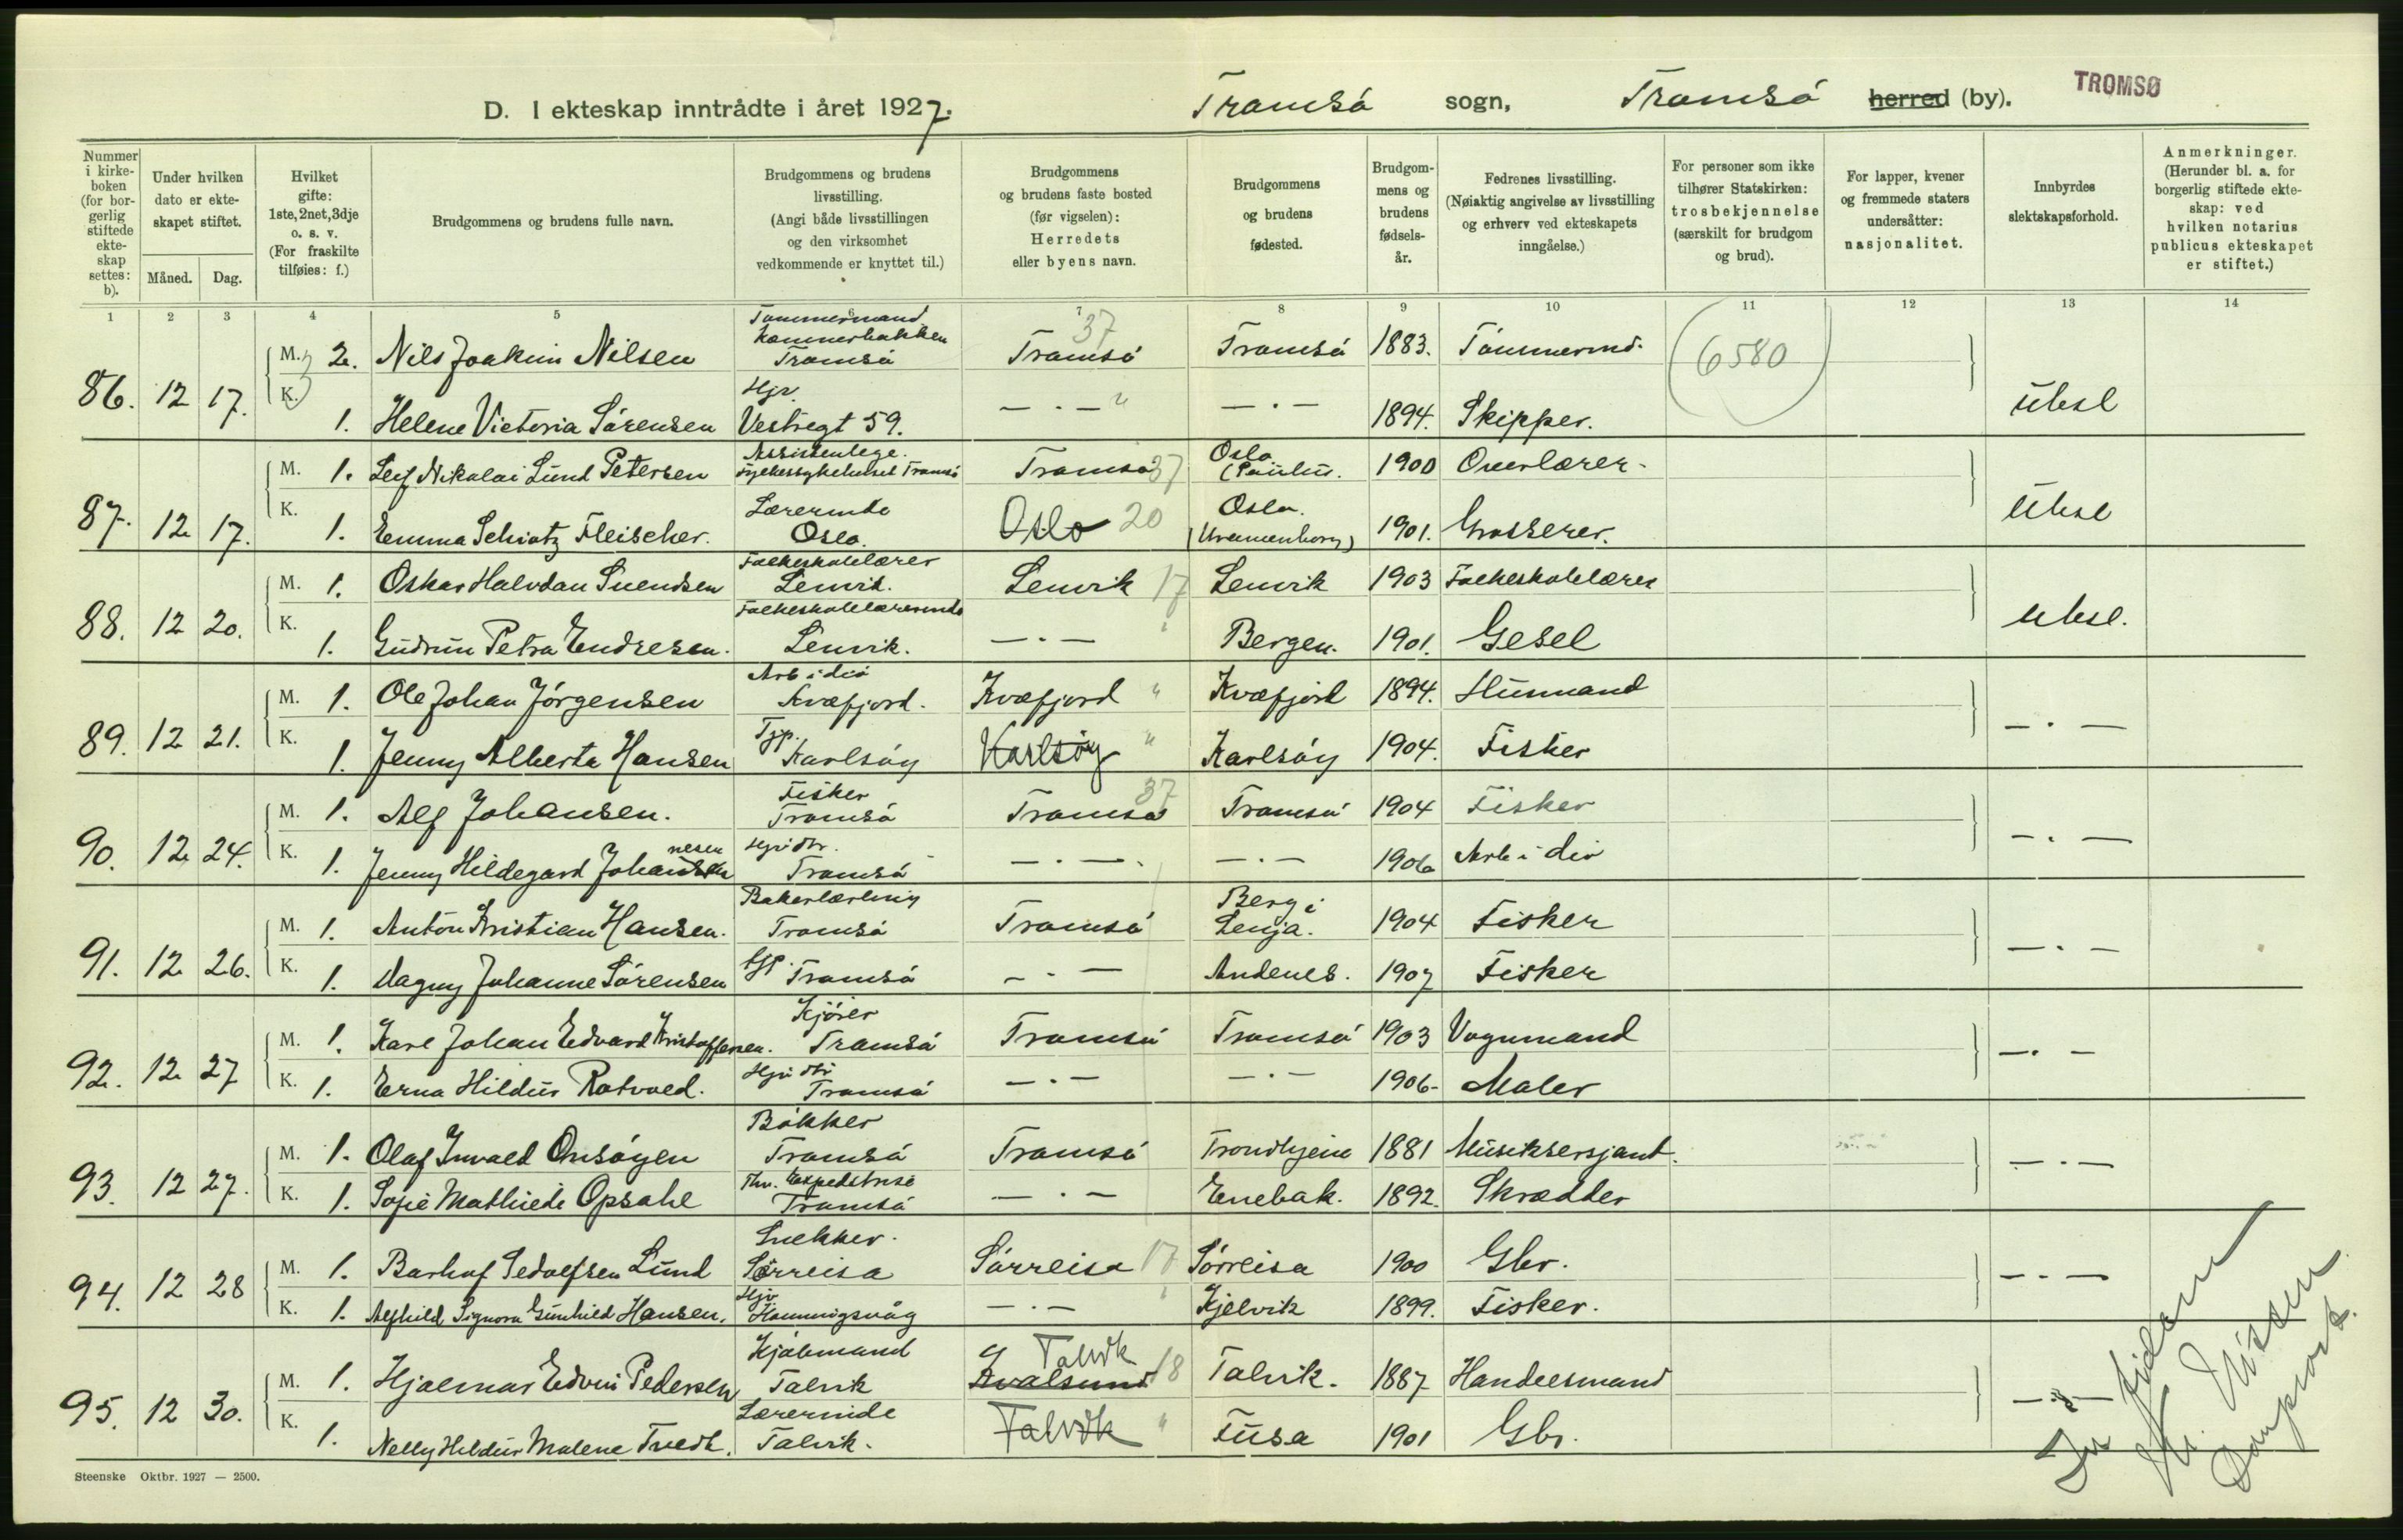 D. I ekteskap inntrådte i året 1927.
Tromsø sogn, Tromsø herred (by). TROMSØ
Nummer i kirke- boken (for bor- gerlig stiftede ekte- skap settes: b).
Under hvilken dato er ekte- skapet stiftet.
Måned. Dag.
Hvilket gifte: 1ste, 2net, 3dje o. s. v. (For fraskilte tilføies: f.)
Brudgommens og brudens fulle navn.
Brudgommens og brudens livsstilling. (Angi både livsstillingen og den virksomhet vedkommende er knyttet til.)
Brudgommens og brudens faste bosted (før vigselen): Herredets eller byens navn.
Brudgommens og brudens fødested.
Brudgom- mens og brudens fødsels- år.
Fedrenes livsstilling. (Nøiaktig angivelse av livsstilling og erhverv ved ekteskapets inngåelse.)
For personer som ikke tilhører Statskirken: trosbekjennelse (særskilt for brudgom og brud).
For lapper, kvener og fremmede staters undersåtter: nasjonalitet.
Innbyrdes slektskapsforhold.
Anmerkninger. (Herunder bl. a. for borgerlig stiftede ekte- skap: ved hvilken notarius publicus ekteskapet er stiftet.)
1 2 3 4 5 6 7 8 9 10 11 12 13 14
86. 12 17. M. 2. Nils Joakim Nilsen Tømmermand Tromsø Tromsø 37 Tromsø 1883. Tømmermd. 6580
K. 1. Helene Victoria Sørensen Hjv. Vestregt 59. — . — " — . — 1894. Skipper. Ubesl
87. 12 17. M. 1. Leif Nikolai Lund Petersen Assistentlege. Fylkessykehuset Tromsø Tromsø 37 Oslo (Paulus. 1900 Overlærer.
K. 1. Emma Schiøtz Fleischer. Lærerinde Oslo. Oslo 20 Oslo. (Uranienborg) 1901. Grosserer. Ubesl
88. 12 20. M. 1. Oskar Halvdan Svendsen Folkeskolelærer Lenvik. Lenvik 17 Lenvik 1903 Folkeskolelærer
K. 1. Gudrun Petra Endresen. Folkeskolelærerinde Lenvik. — . — " Bergen. 1901. Gesel Ubesl.
89. 12 21. M. 1. Ole Johan Jørgensen Arb i div Kvæfjord. Kvæfjord " Kvæfjord 1894. Husmand
K. 1. Jenny Alberta Hansen Tjp. Karlsøy Karlsøy " Karlsøy 1904. Fisker — . —
90. 12 24. M. 1. Alf Johansen. Fisker Tromsø Tromsø 37 Tromsø 1904 Fisker
K. 1. Jenny Hildegard Johannesen Tromsø — . — . — . — 1906 Arb i div — . —
91. 12 26. M. 1. Anton Kristian Hansen. Bakerlærling Tromsø Tromsø Berg i Senja. 1904 Fisker
K. 1. Dagny Johanne Sørensen Tjp. Tromsø — . — Andenes. 1907 Fisker — . —
92. 12 27 M. 1. Karl Johan Edvard Kristoffersen. Kjører Tromsø Tromsø Tromsø 1903 Vognmand
K. 1. Erna Hildur Rotvold. Tromsø — . — — . — 1906. Maler — . —
93. 12 27. M. 1. Olaf Invald Onsøyen Bøkker Tromsø Tromsø Trondhjem 1881 Musiksersjant.
K. 1. Sofie Mathilde Opsahl Expeditrise Tromsø — . — Enebak. 1892. Skrædder — . —
94. 12 28 M. 1. Lund Snekker. Sørreisa Sørreisa 17 Sørreisa 1900 Gbr.
K. 1. Alfhild Signora Gunhild Hansen. Hjv Honningsvåg — . — " Kjelvik 1899. Fisker. — . —
95. 12 30. M. 1. Hjalmar Edvin Pedersen Kjøbmand Talvik Kvalsund Talvik 18 Talvik. 1887 Handelsmand
K. 1. Nelly Hildur Malene Tvedt. Lærerinde Talvik. Talvik " Fusa 1901 Gbr. — . —
Steenske Oktbr. 1927 — 2500.